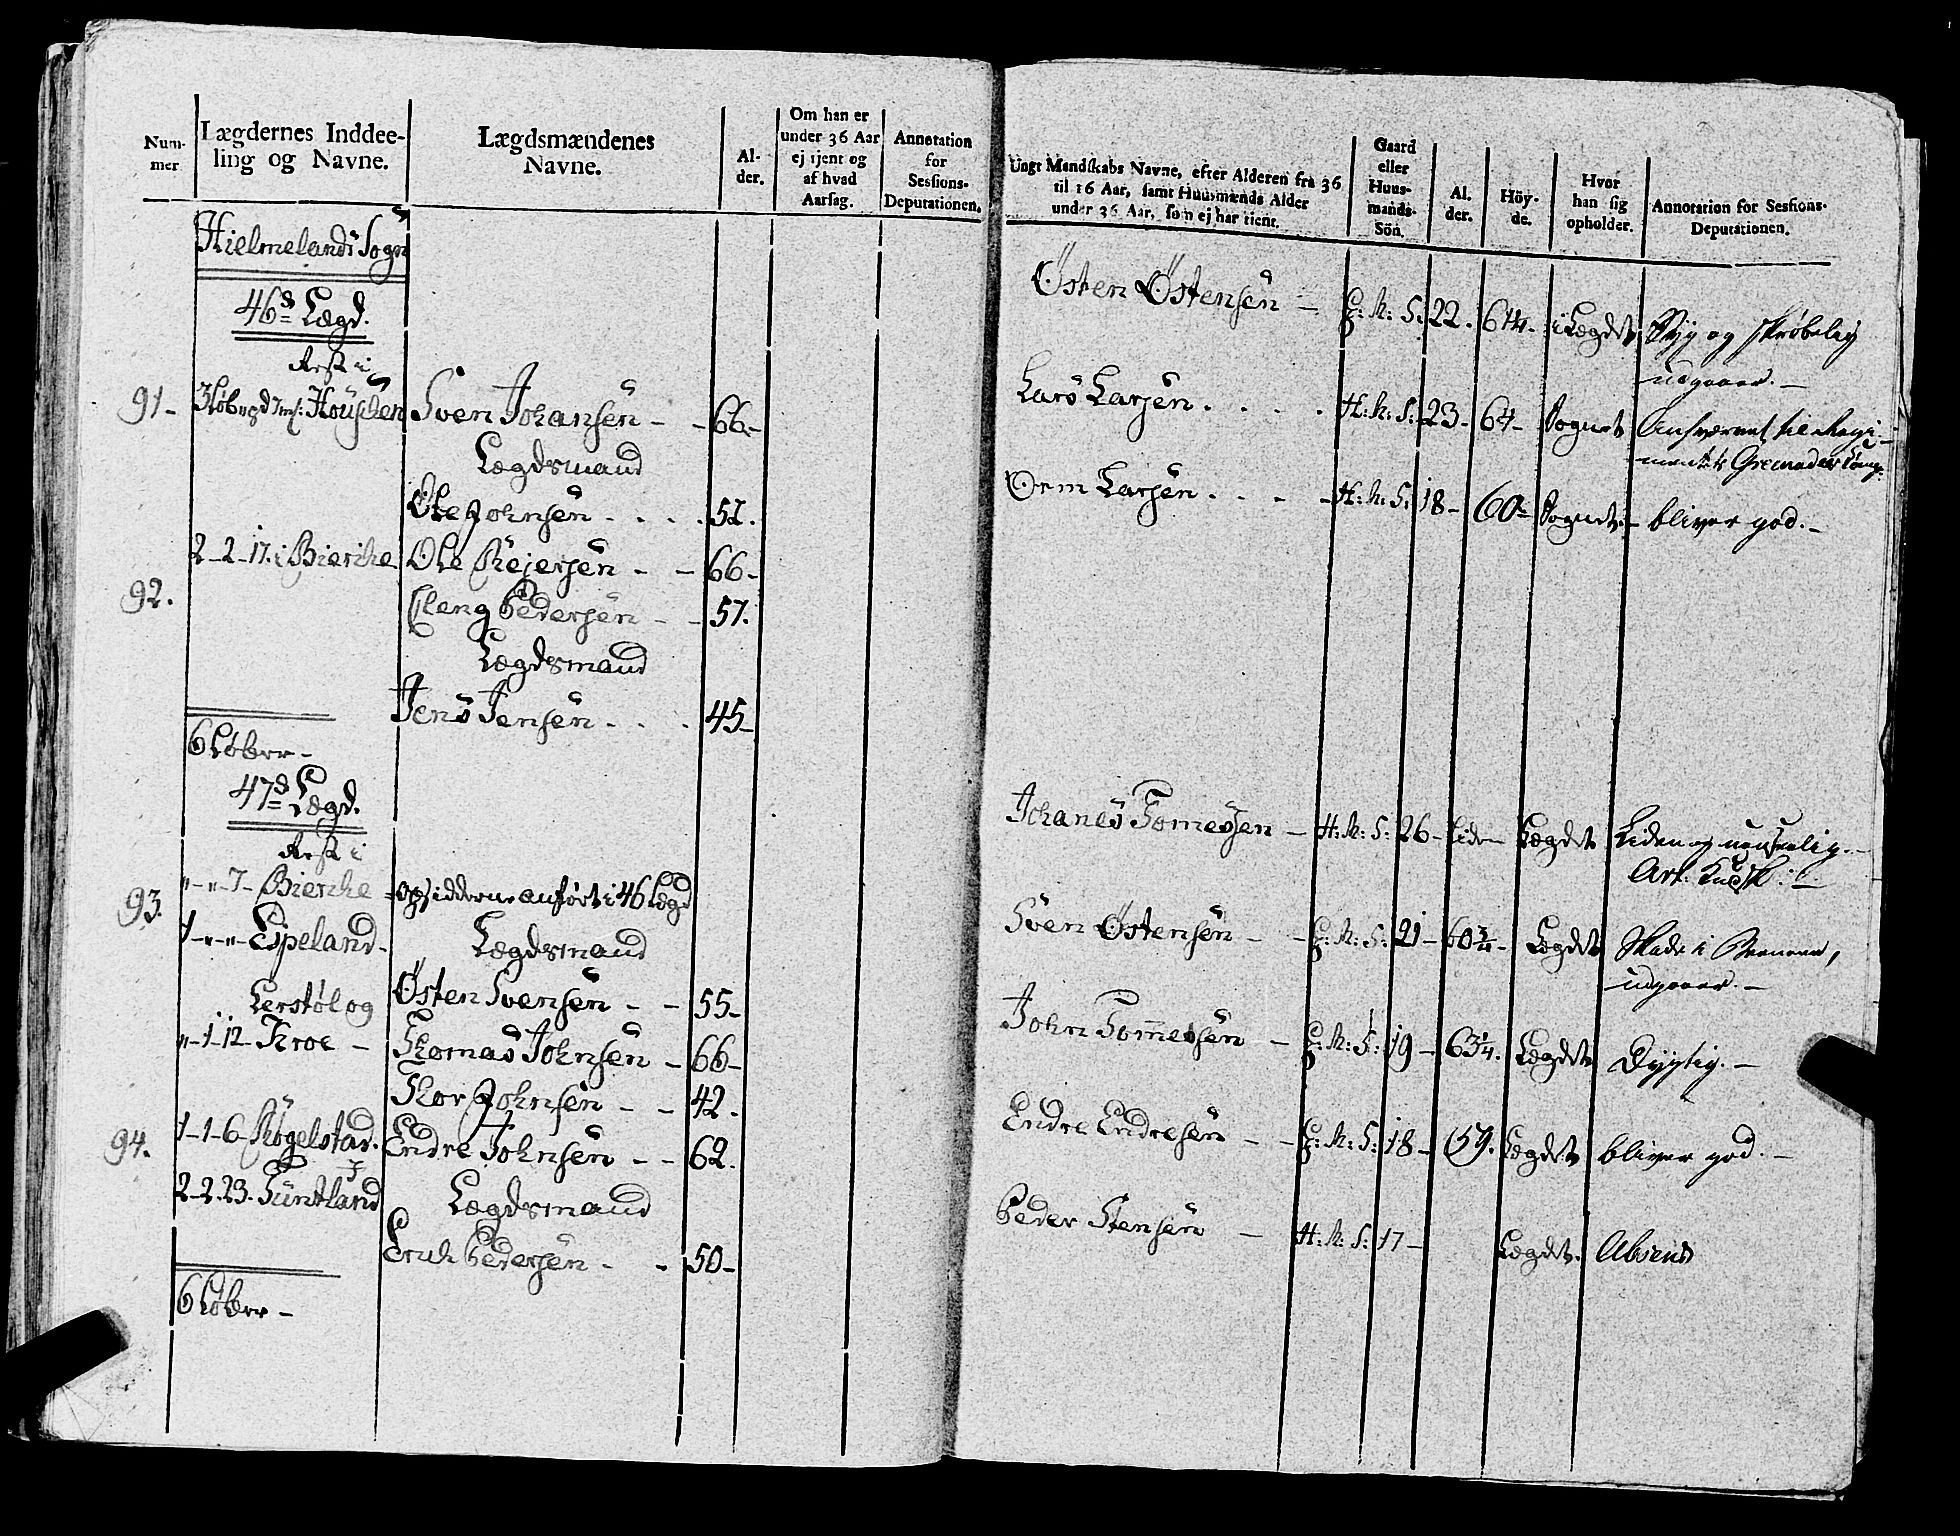 Num-
mer
Lægdernes Inddee-
ling og Navne.
Lægdsmændenes
Navne.
Al-
der.
Om han er
under 36 Aar
ej tjent og
af hvad
Aarsag.
Annotation
for
Sessions-
Deputationen.
Hielmelands Sogn
46de Lægd.
Rest i
91-
Sven Johansen - - 66-
Lægdsmand
Ole Johnsen - . . . 52.
2-2-17. i Bierche
Ole Rejersen - - 66-
92.
Pedersen - - 57.
Lægdsmand
Jens Jensen - . . . 45-
6 Løber -
47de Lægd.
Rest i
"-"-7- Bierche
opsidderne anført i 46 Lægd
93.
1-"-"- Espeland-
Lægdsmand
Lerstøl og
Östen Svensen - - 55-
"-1-12- Kroe -
Thomas Johnsen - 66-
Thor Johnsen - - 42.
1-1-6- Røgelstad.
Endre Johnsen - - 62.
94.
2-2.23. Funtland
Lægdsmand
Erich Pedersen - - 50-
6 Løber -
Ungt Mandskabs Navne, efter Alderen fra 36
til 16 Aar, samt Huusmænds Alder
under 36 Aar, som ej har tient.
Gaard
eller
Huus-
mands-
Sön.
Al.
der.
Höy-
de.
Hvor
han sig
opholder.
Annotation for Sessions-
Deputationen.
Östen Östensen - G: M: S: 22. 61¼- i Lægdet Syg og skrøbelig
udgaaer. -
Lars Larsen . . . . H: M: S: 23- 64- Sognet
Grenadeer Comp:
Orm Larsen . . - - H: M: S: 18- 60- Sognet- bliver god. -
Johanes Tomessen - H: M: S: 26- Liden Lægdet Liden og uanseelig. -
Art: Kudsk: -
Sven Östensen - - G: M: S: 21- 60¾- Lægdet Skade i
udgaaer. -
John Tommessen - G: M: S: 19- 63¼. Lægdet Dygtig. -
Endre Endresen - - G: M: S: 18- 59. Lægdet bliver god. -
Peder Stensen - H: M: S: 17- Lægdet. Absent